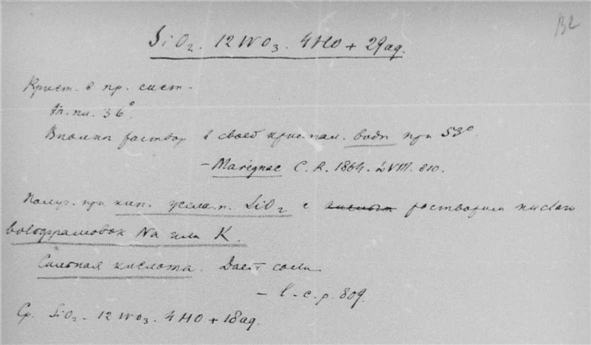 132
SiO2. 12WO3. 4HO + 29aq.
Крист. в пр. сист.
Тпл. 36°.
Вполне раствор в своей кристал. воде при 53°
— Marignac C. R. 1864. LVIII. 810.
Получ. при кип. SiO2 с кислот раствором кислаго
вольфрамовок Na или K.
Сильная кислота. Дает соли
— l. c. p. 809.
Ср. SiO2 - 12WO3. 4HO + 18aq.